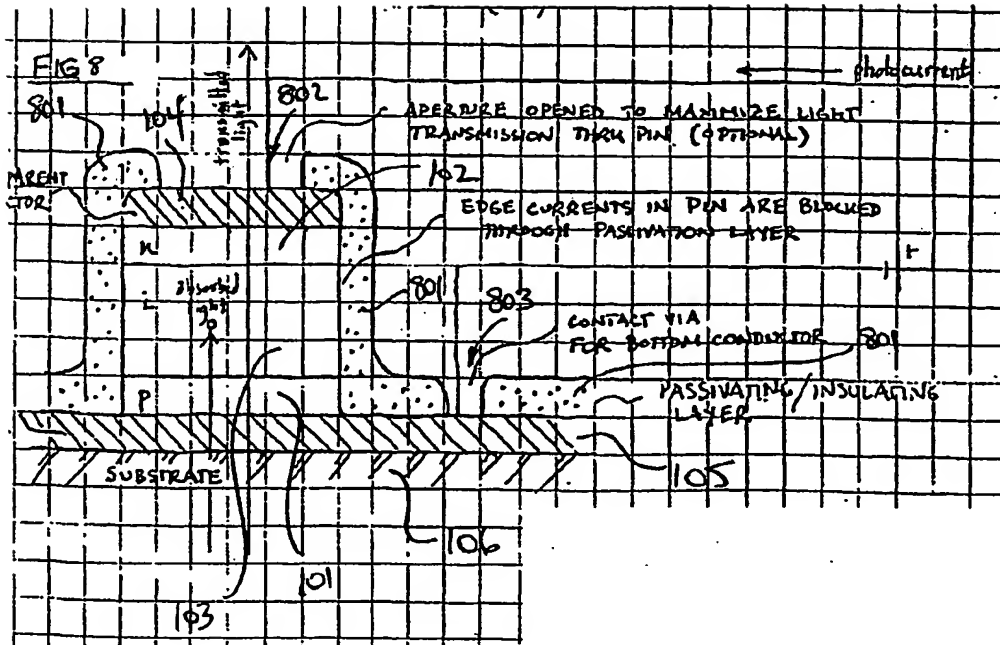 FIG 8
801
104
transmitted
light
802
photocurrent
APERTURE OPENED TO MAXIMIZE LIGHT
TRANSMISSION THRU PIN (OPTIONAL)
102
EDGE CURRENTS IN PIN ARE BLOCKED
THROUGH PASSIVATION LAYER
n
i
absorbed
light
801
803
CONTACT VIA
FOR BOTTOM CONDUCTOR
801
P
PASSIVATING/INSULATING
LAYER
SUBSTRATE
105
106
101
103